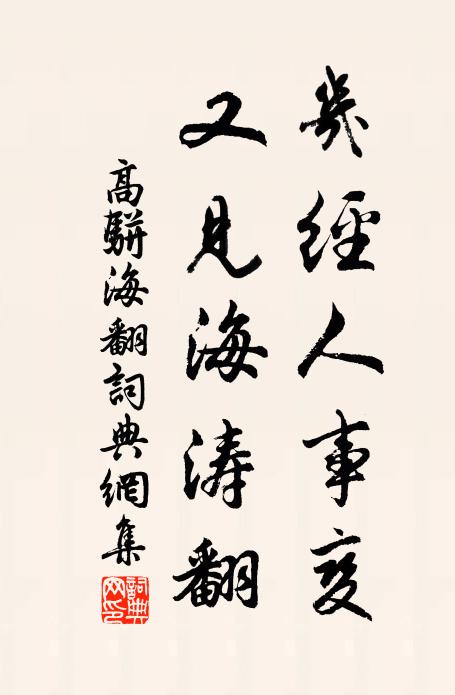 幾經人事變
又見海涛翻
高駢海翻詞典網集
詞典网印